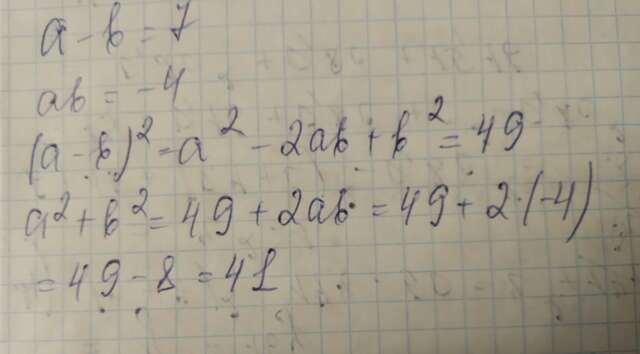 a - b = 7
ab = -4
(a - b)² = a² - 2ab + b² = 49
a² + b² = 49 + 2ab = 49 + 2·(-4)
= 49 - 8 = 41